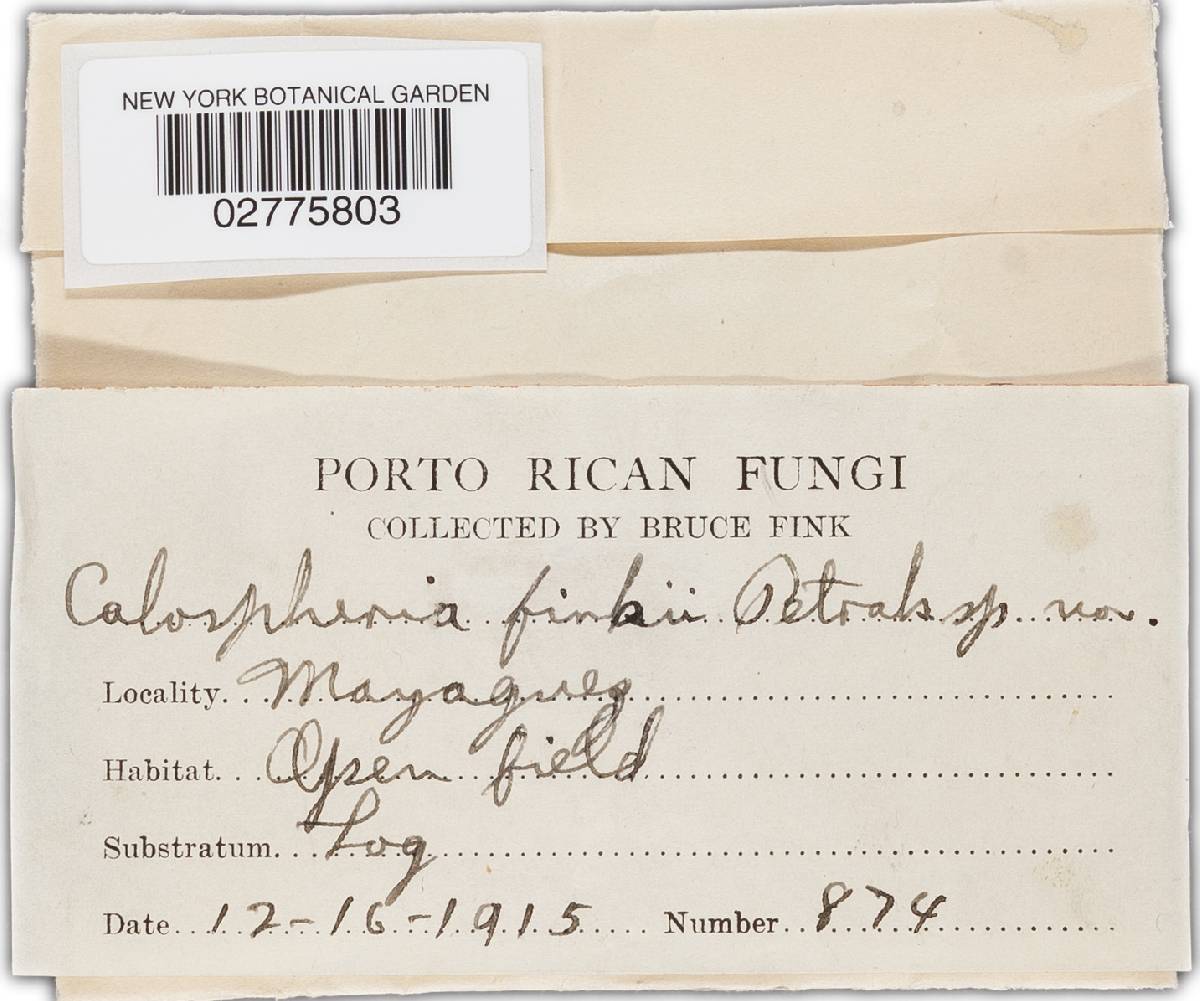 NEW YORK BOTANICAL GARDEN
02775803
PORTO RICAN FUNGI
COLLECTED BY BRUCE FINK
Calospheria finkii Petrak sp. nov.
Locality. Mayaguez
Habitat. Open field
Substratum. Log
Date. 12-16-1915 Number. 874